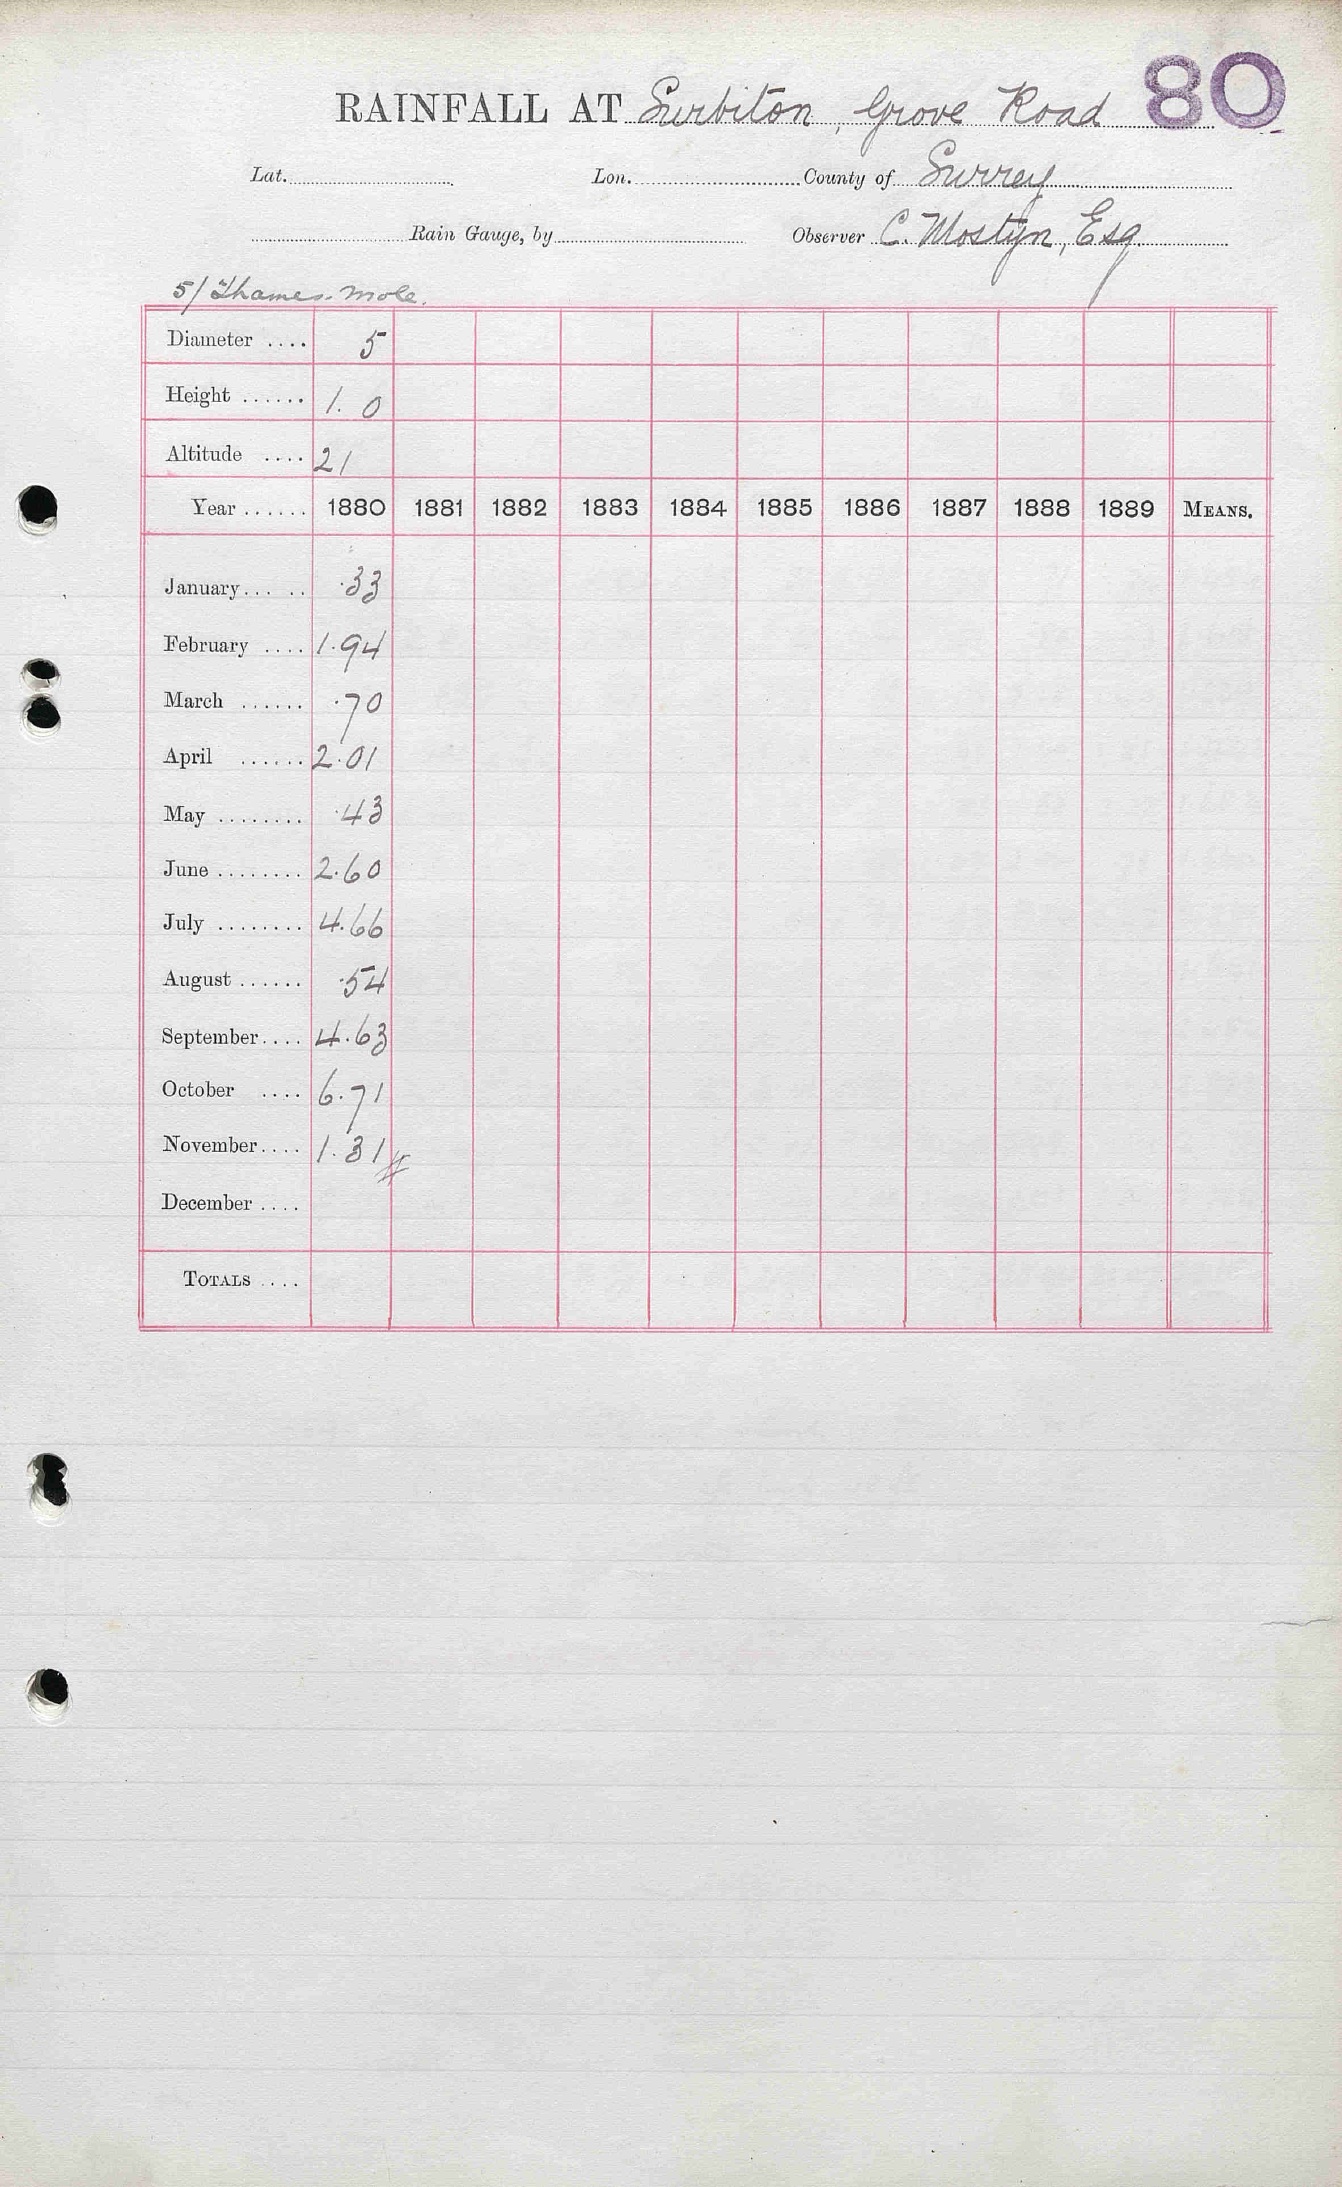 80
RAINFALL AT Surbiton, Grove Road
Lat. Lon. County of Surrey
Rain Gauge, by Observer C. Mostyn, Esq.
5/ Thames. Mole.
Diameter .... 5
Height ...... 1. 0
Altitude .... 21
Year ...... 1880 1881 1882 1883 1884 1885 1886 1887 1888 1889 MEANS.
January... .. .33
February .... 1.94
March ...... .70
April ...... 2.01
May ........ .43
June ........ 2.60
July ........ 4.66
August ...... .54
September.... 4.63
October .... 6.71
November.... 1.31 #
December ....
TOTALS ....